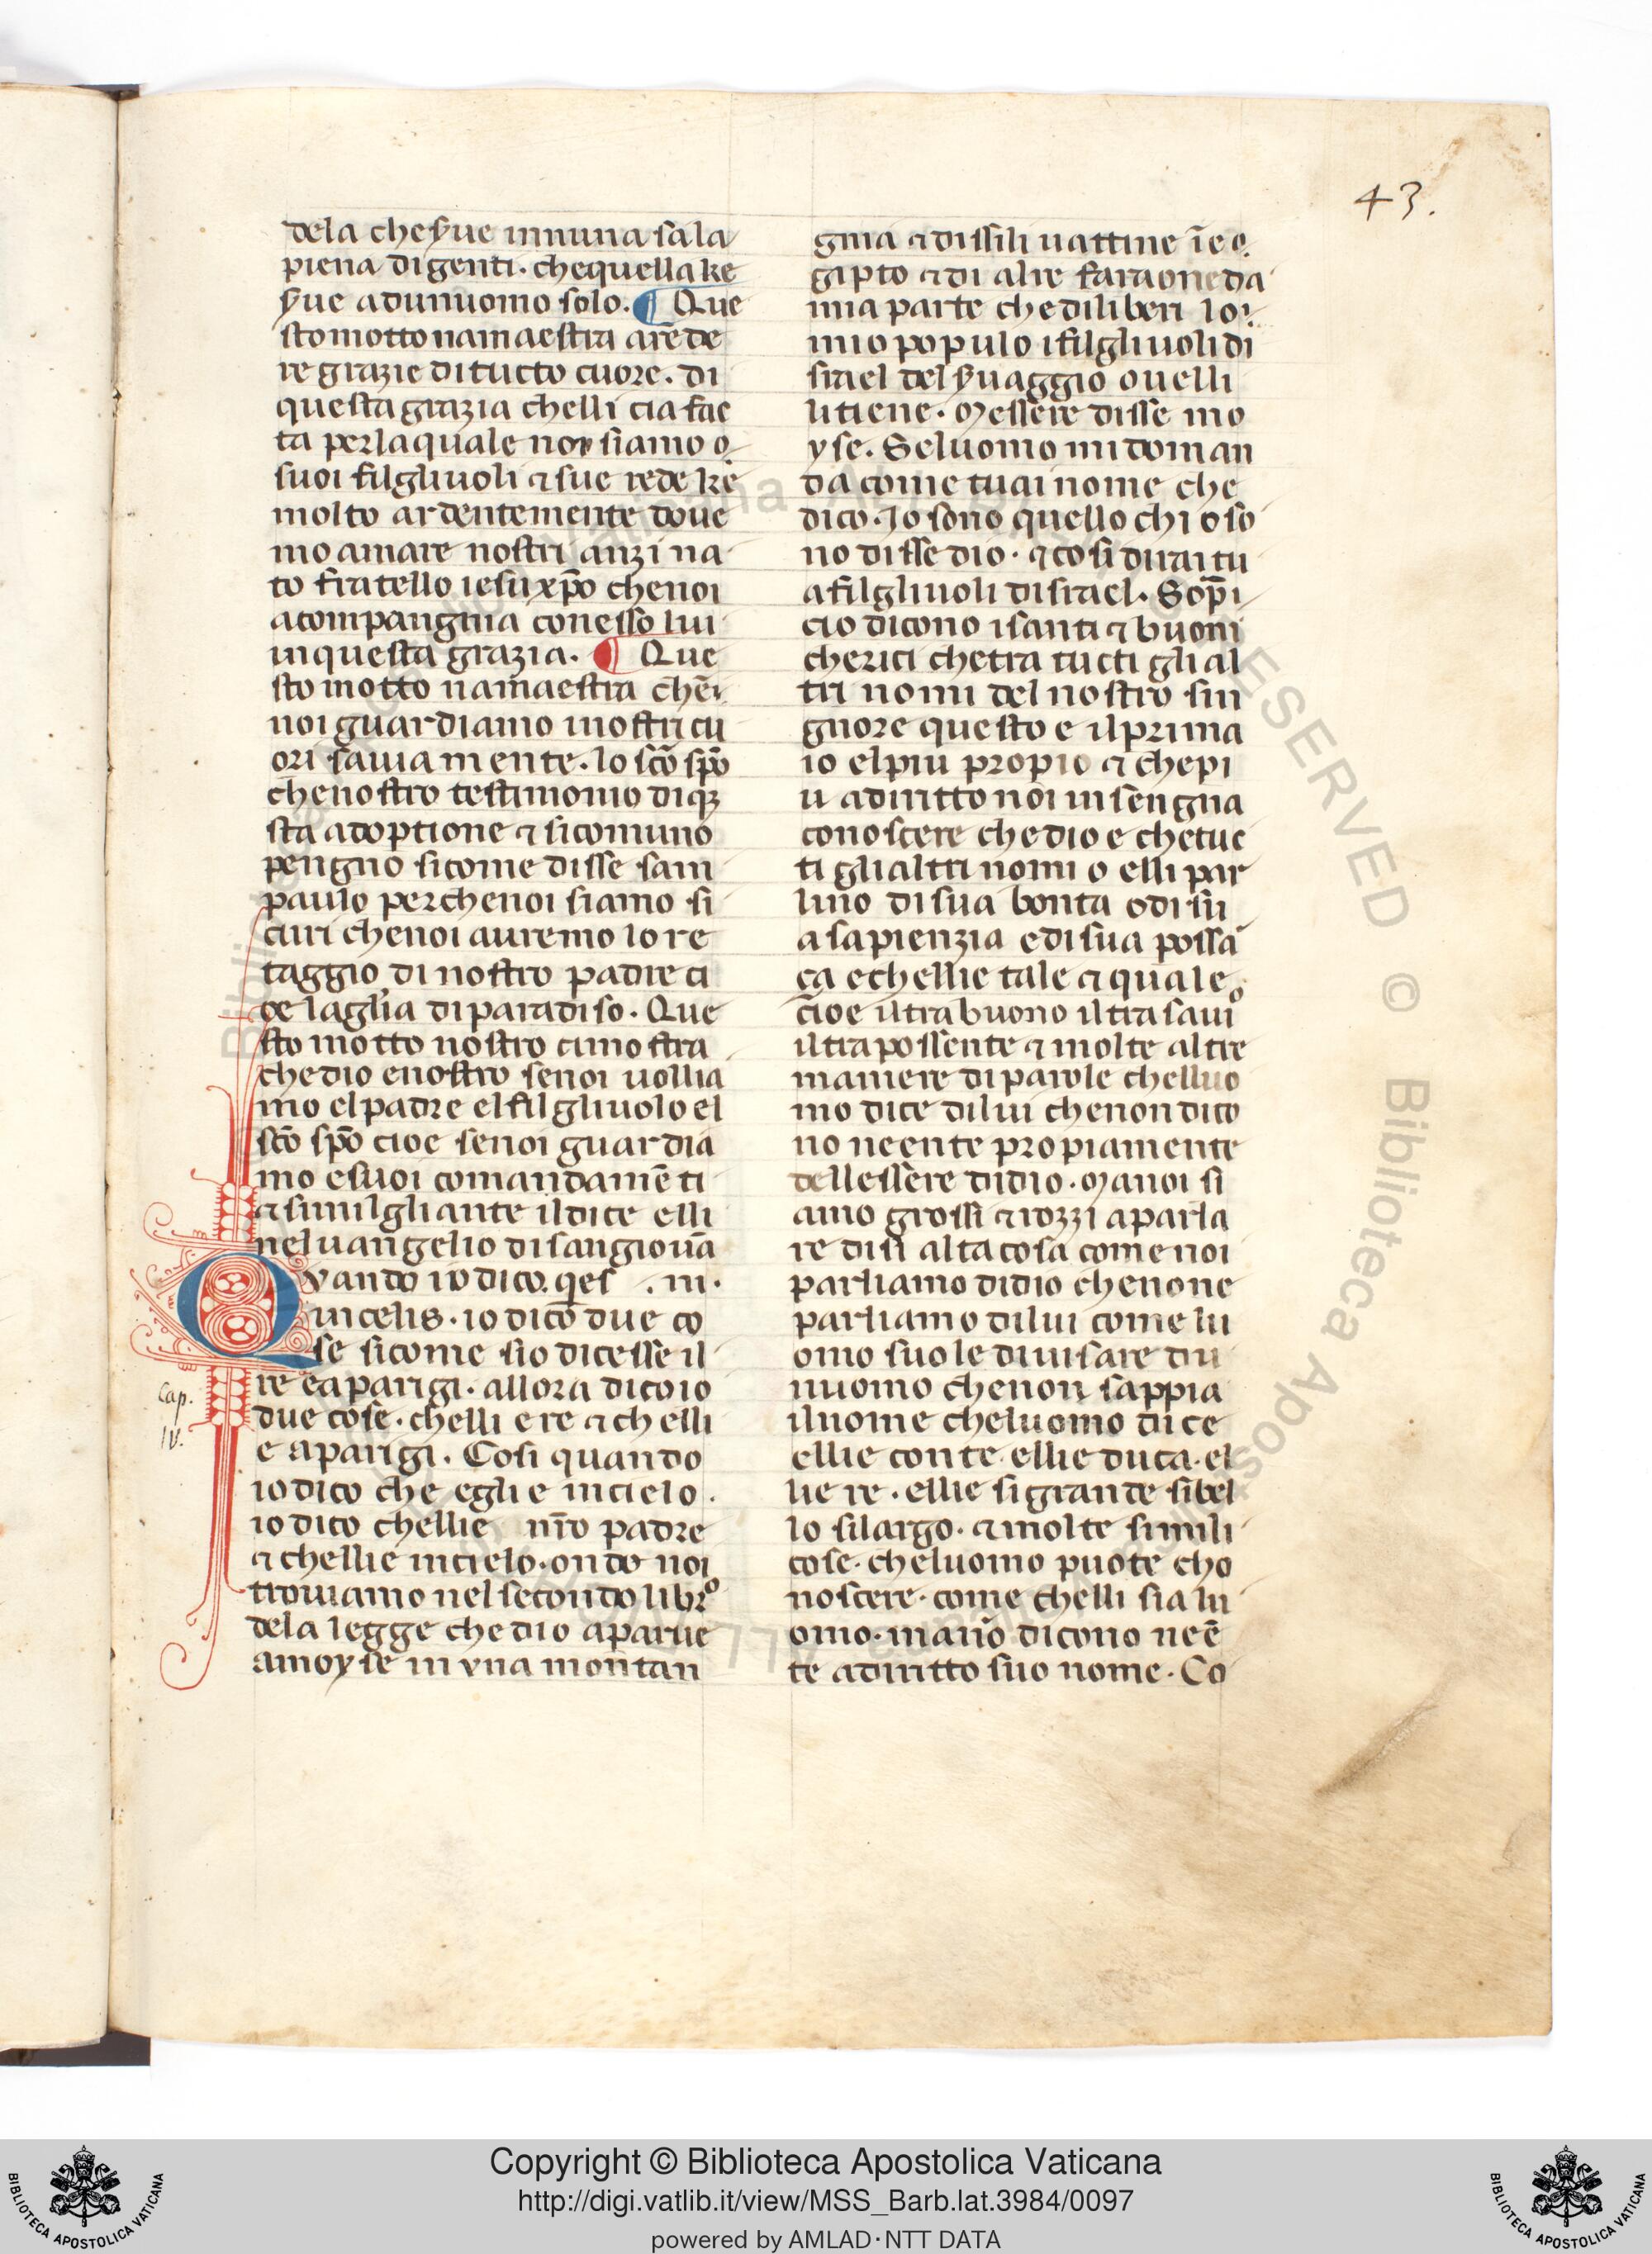 43.
dela che s̄ue innuna sala
piena di genti. che quella ke
s̄ue adunuomo solo. ¶ Que
sto motto namaestra arēde
re grazie di tucto cuore. di
questa grazia chelli cia fac
ta per laquale noi siamo
suoi filgliuoli ⁊ sue rede ke
molto ardentemente doue
mo amare nostri anzi na
to fratello iesu xp̄o che noi
acompangnia con esso lui
in questa grazia. ¶ Que
sto motto namaestra chē
noi guardiamo inostri cu
ori sauiamente. lo scō spō
che nostro testimonio diq̨
sta adoptione ⁊ si comuno
pengno sicome disse sam
paulo perche noi siamo si
curi che noi auremo lo re
taggio di nostro padre ci
oe la gl̄ia di paradiso. Que
sto motto nostro cimostra
che dio e nostro se noi uollia
mo el padre el filgliuolo el
scō spō cioe se noi guardia
mo e suoi comandamēti
⁊ similgliante il dice elli
nel uangelio di san giouā
Quando io dico. qes . in.
in celis. io dicō due co
se sicome sio dicesse il
re e a parigi. allora dico io
due cose. chelli e re ⁊ chelli
e a parigi. Cosi quando
io dico che egli e in cielo.
io dico chellie nr̄o padre
⁊ chellie in cielo. onde noi
trouiamo nel secondo libro
dela legge che dio aparue
a moyse in vna montan
Cap.
IV.
gnia ⁊ dissili uattine ī e
gipto ⁊ di al re faraone da
mia parte che diliberi lo
mio populo i filgliuoli di
srael del s̄uaggio o uelli
li tiene. Messere disse mo
yse. Seluomo mi doman
da come tu ai nome che
dico. Io sono quello chi o so
no disse dio. ⁊ cosi dirai tu
a filgliuoli disrael. Sop̄i
cio dicono i santi ⁊ buoni
cherici che tra tucti gli al
tri nomi del nostro sin
gnore questo e il prima
io el piu propio ⁊ che pi
u adiritto noi insengnia
conoscere che dio e che tuc
ti gli altri nomi o elli par
lino di sua bonta o di su
a sapienzia e di sua possa
ça e chellie tale ⁊ quale
cioe il tra buono il tra sauio
il tra possente ⁊ molte altre
maniere di parole chelluo
mo dice di lui che non dico
no neente propiamente
dellessere di dio. Ma noi si
amo grossi ⁊ rozzi a parla
re di si alta cosa come noi
parliamo di dio che non e
parliamo di lui come lu
omo suole diuisare du
nuomo che non sappia
il nome cheluomo dice
ellie conte ellie duca. el
lie re. ellie si grande si bel
lo si largo. ⁊ molte simili
cose. cheluomo puote cho
noscere. come chelli sia lu
omo. ma nō dicono neē
te adiritto suo nome. Co
Copyright © Biblioteca Apostolica Vaticana
http://digi.vatlib.it/view/MSS_Barb.lat.3984/0097
powered by AMLAD·NTT DATA
BIBLIOTECA APOSTOLICA VATICANA
BIBLIOTECA APOSTOLICA VATICANA